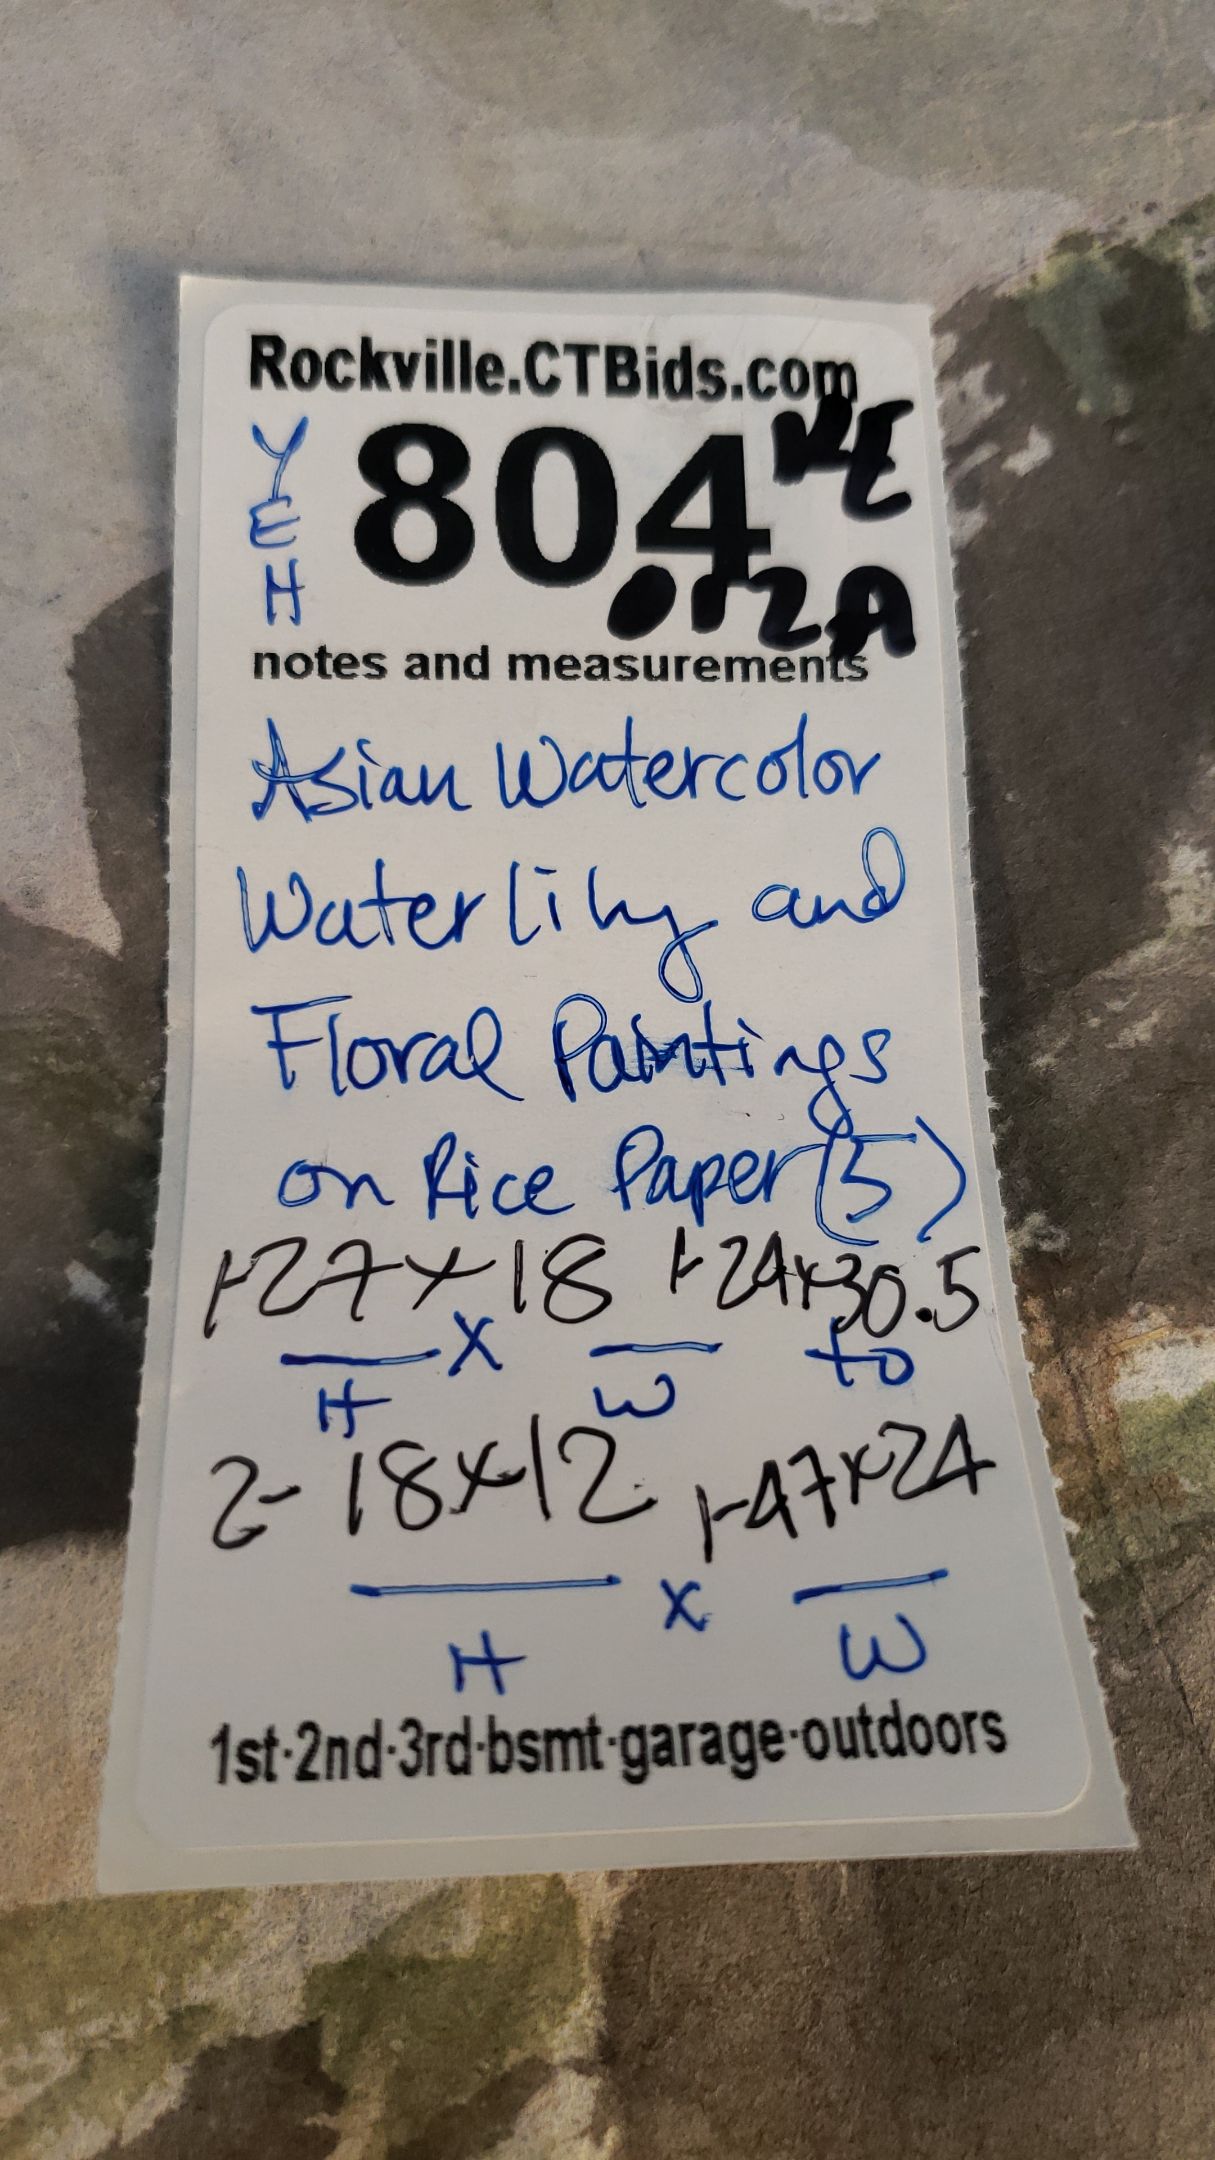 Rockville.CTBids.com
YEH
804
notes and measurements
Asian Watercolor
Waterlily and
Floral Paintings
on Rice Paper (5)
1-27x18 1-24x30.5
X to
H W
2-18x12 1-47x24
x
H W
1st·2nd·3rd·bsmt·garage·outdoors